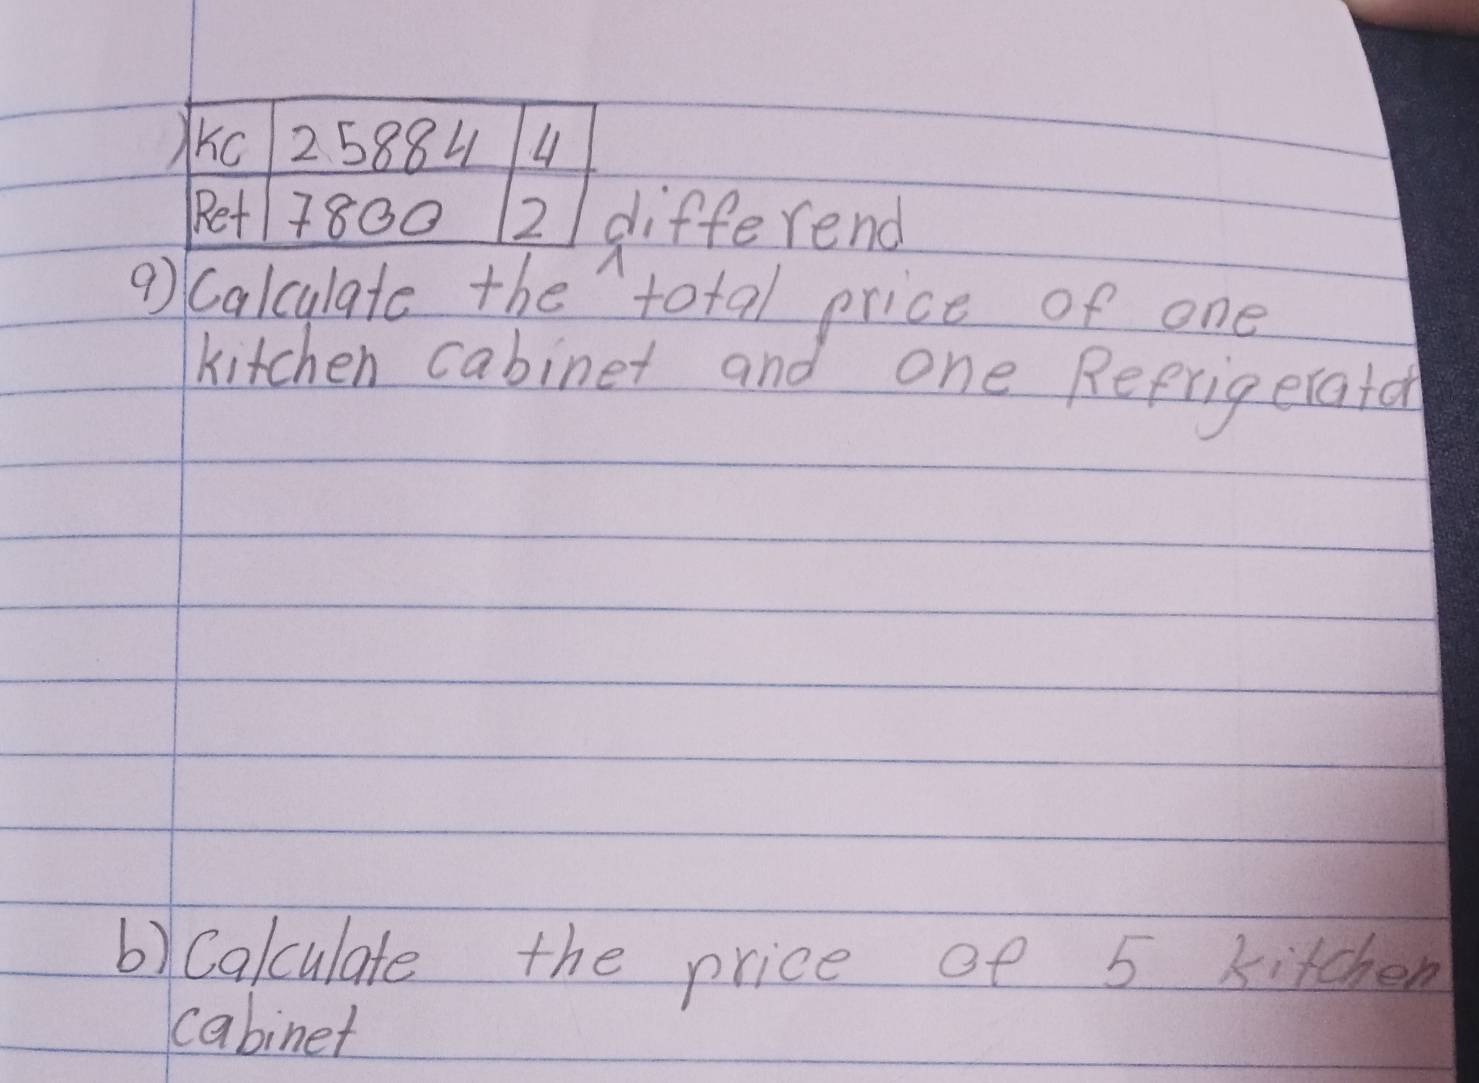 ) KC 25884 4
Ref 7800 2 differend
a) Calculate the ^ total price of one
kitchen cabinet and one Refrigerator
b) Calculate the price of 5 kitchen
cabinet